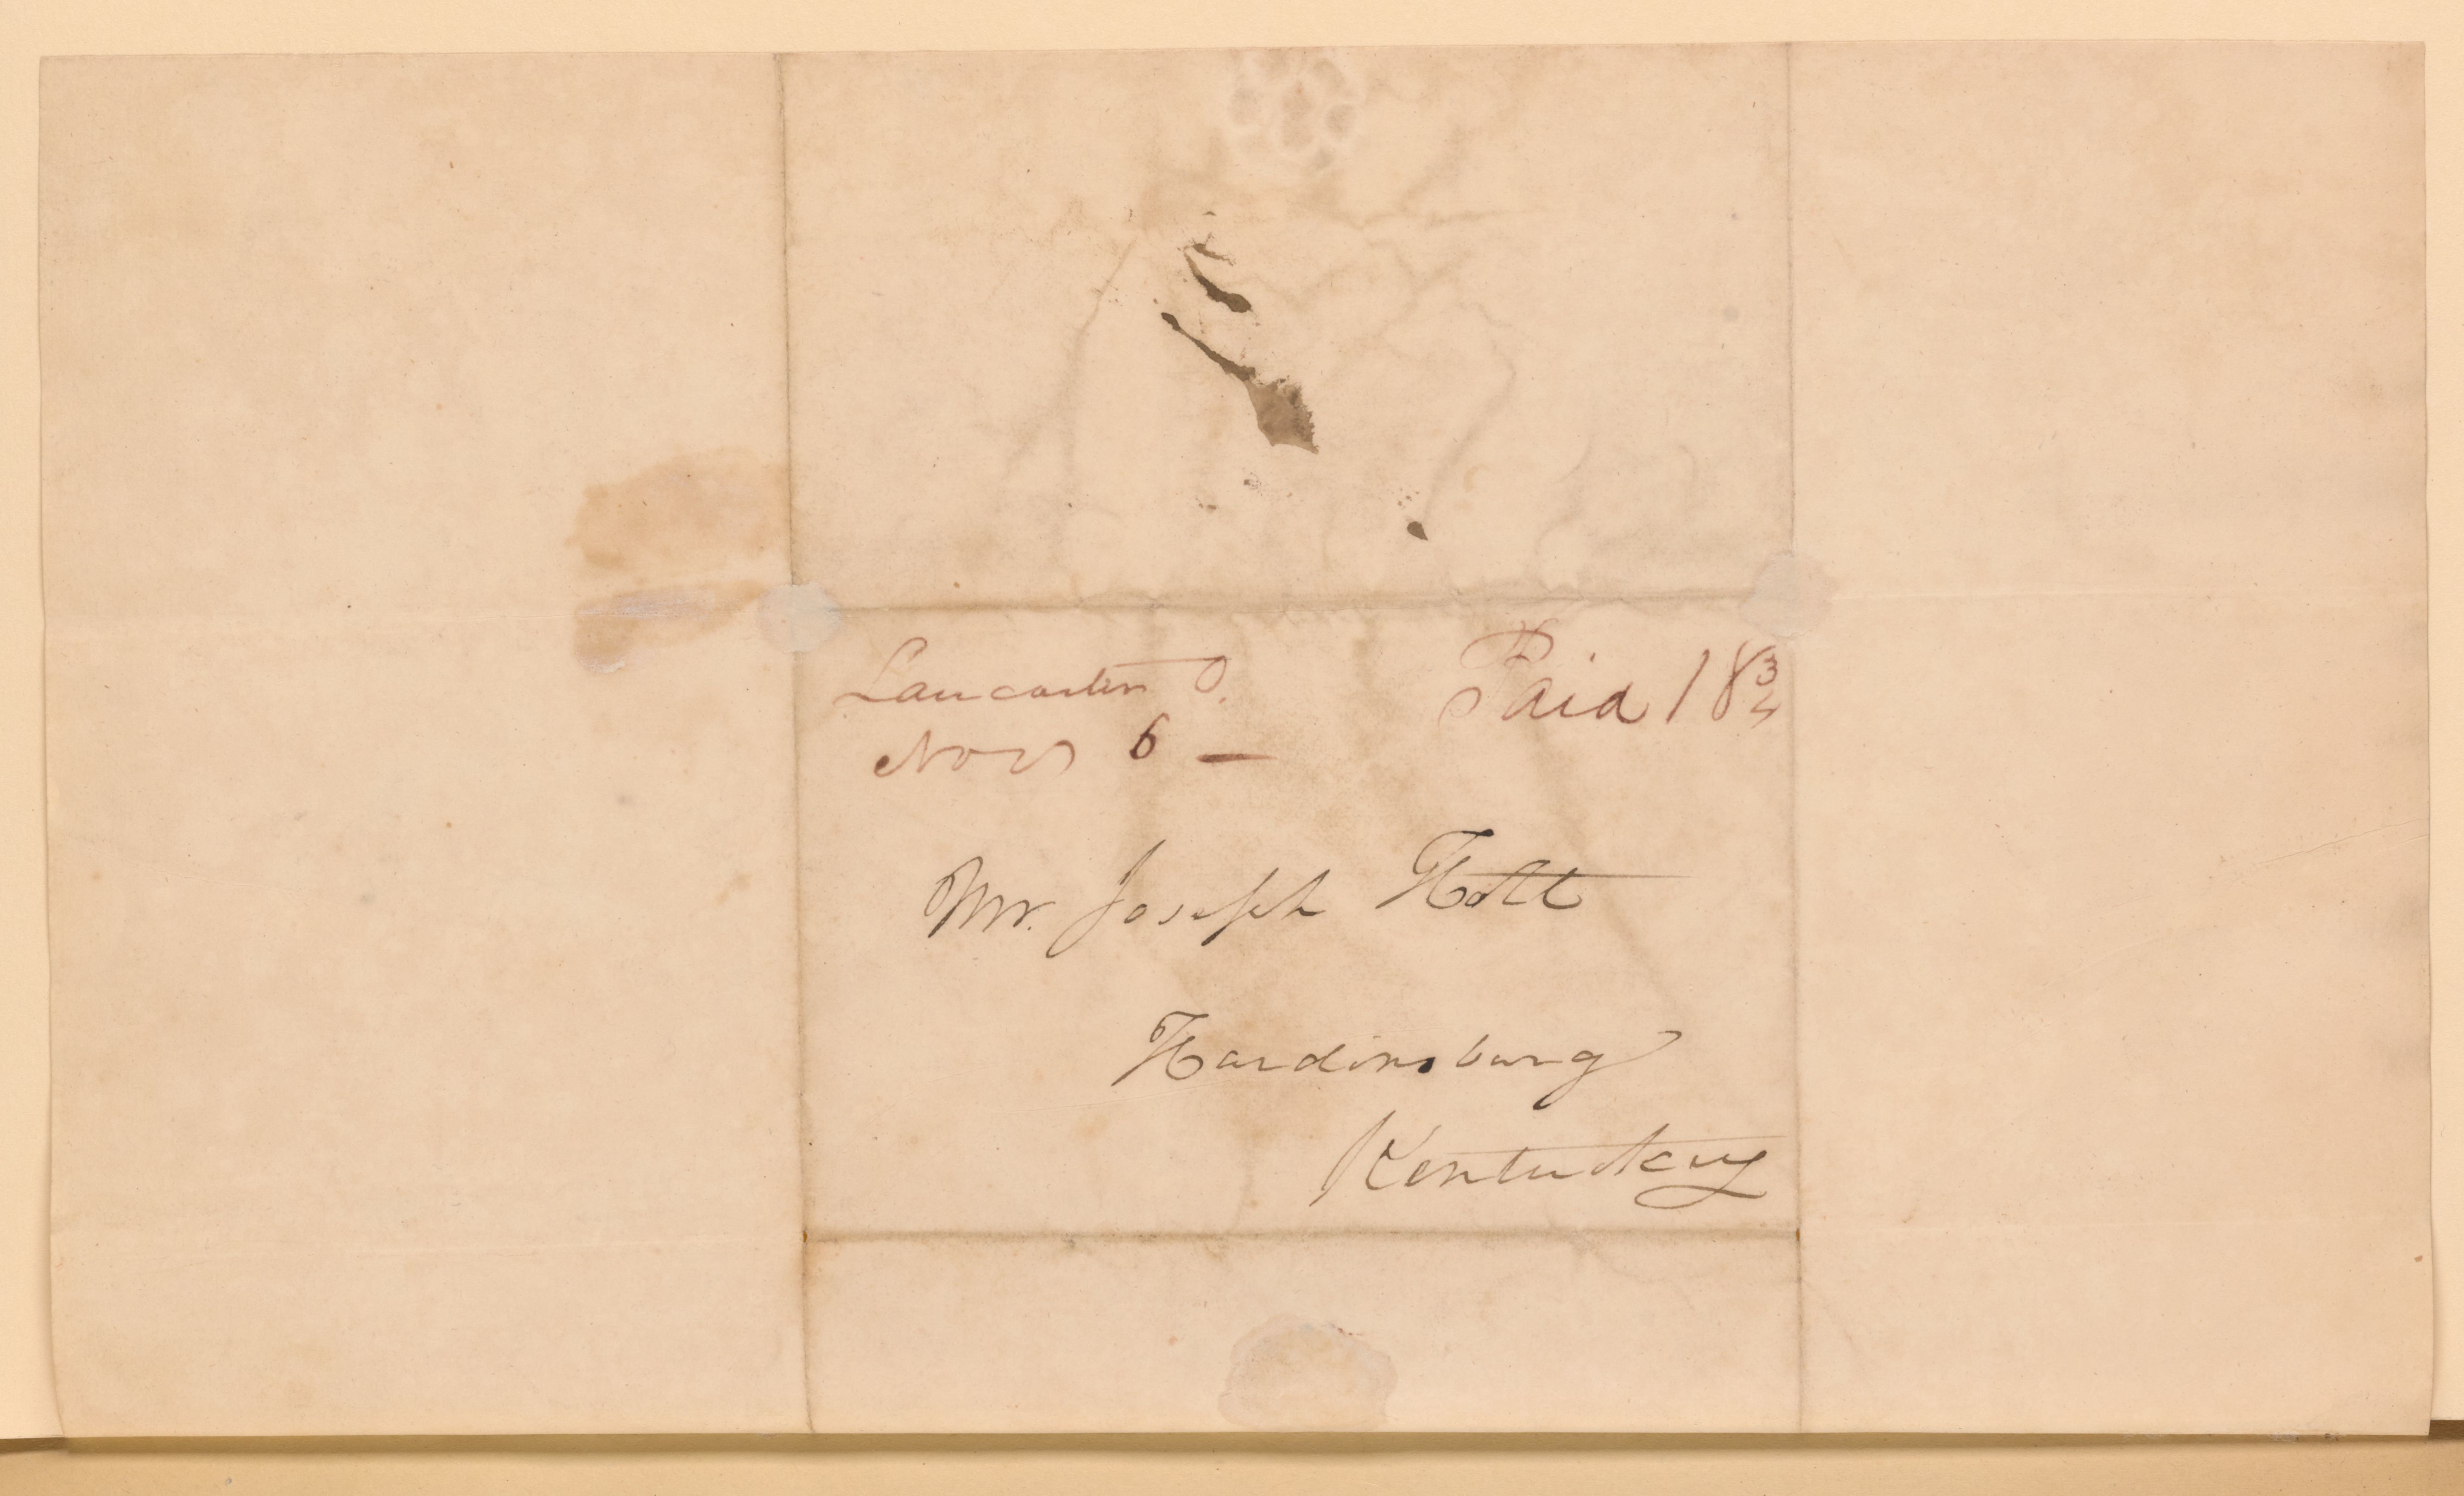 Lancaster O. Paid 18 3/4
Nov 6 —
Mr. Joseph Holt
Hardinsburg
Kentucky